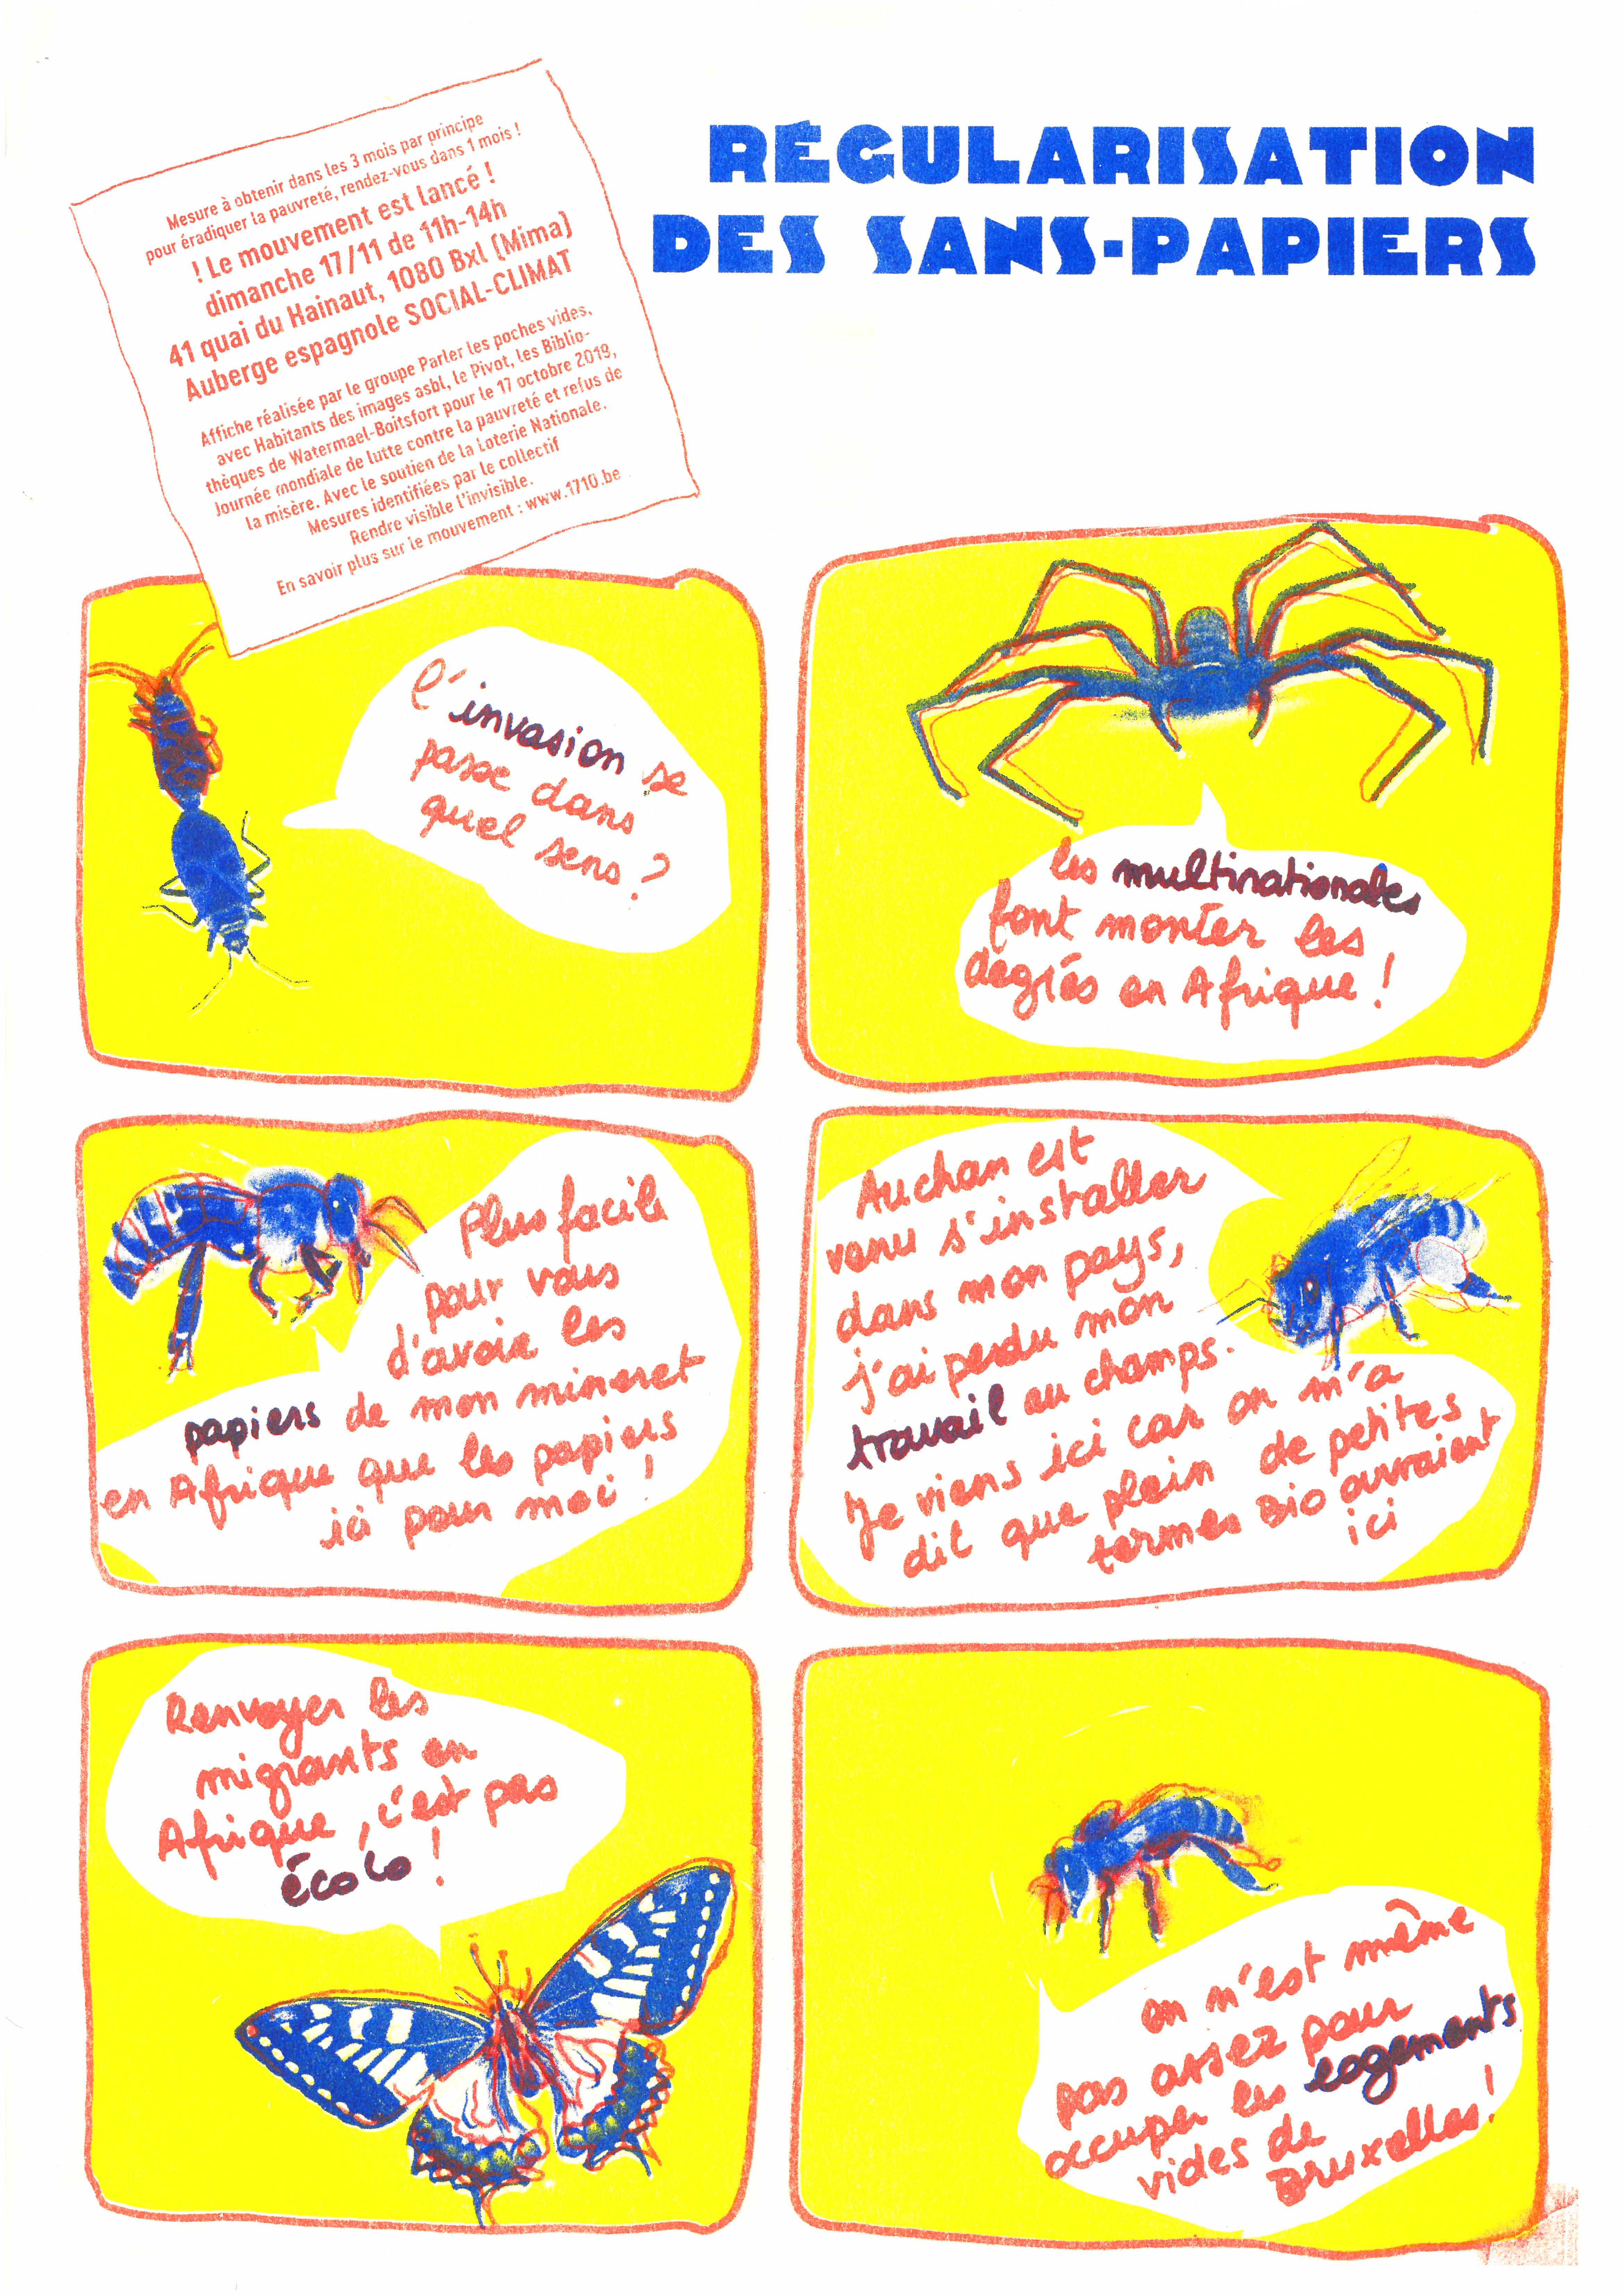 RÉGULARISATION
DES SANS-PAPIERS
Mesure à obtenir dans les 3 mois par principe
pour éradiquer la pauvreté, rendez-vous dans 1 mois !
! Le mouvement est lancé !
dimanche 17/11 de 11h-14h
41 quai du Hainaut, 1080 Bxl (Mima)
Auberge espagnole SOCIAL-CLIMAT
Affiche réalisée par le groupe Parler les poches vides,
avec Habitants des images asbl, le Pivot, les Biblio-
thèques de Watermael-Boitsfort pour le 17 octobre 2019,
Journée mondiale de lutte contre la pauvreté et refus de
la misère. Avec le soutien de la Loterie Nationale.
Mesures identifiées par le collectif
Rendre visible l'invisible.
En savoir plus sur le mouvement : www.1710.be
l'invasion se
passe dans
quel sens ?
les multinationales
font monter les
degrés en Afrique !
Plus facile
pour vous
d'avoir les
papiers de mon mineret
en Afrique que les papiers
ici pour moi !
Auchan est
venu s'installer
dans mon pays,
j'ai perdu mon
travail au champs.
Je viens ici car on m'a
dit que plein de petites
fermes Bio ouvraient
ici
Renvoyer les
migrants en
Afrique, c'est pas
écolo !
on n'est même
pas assez pour
occuper les logements
vides de
Bruxelles !